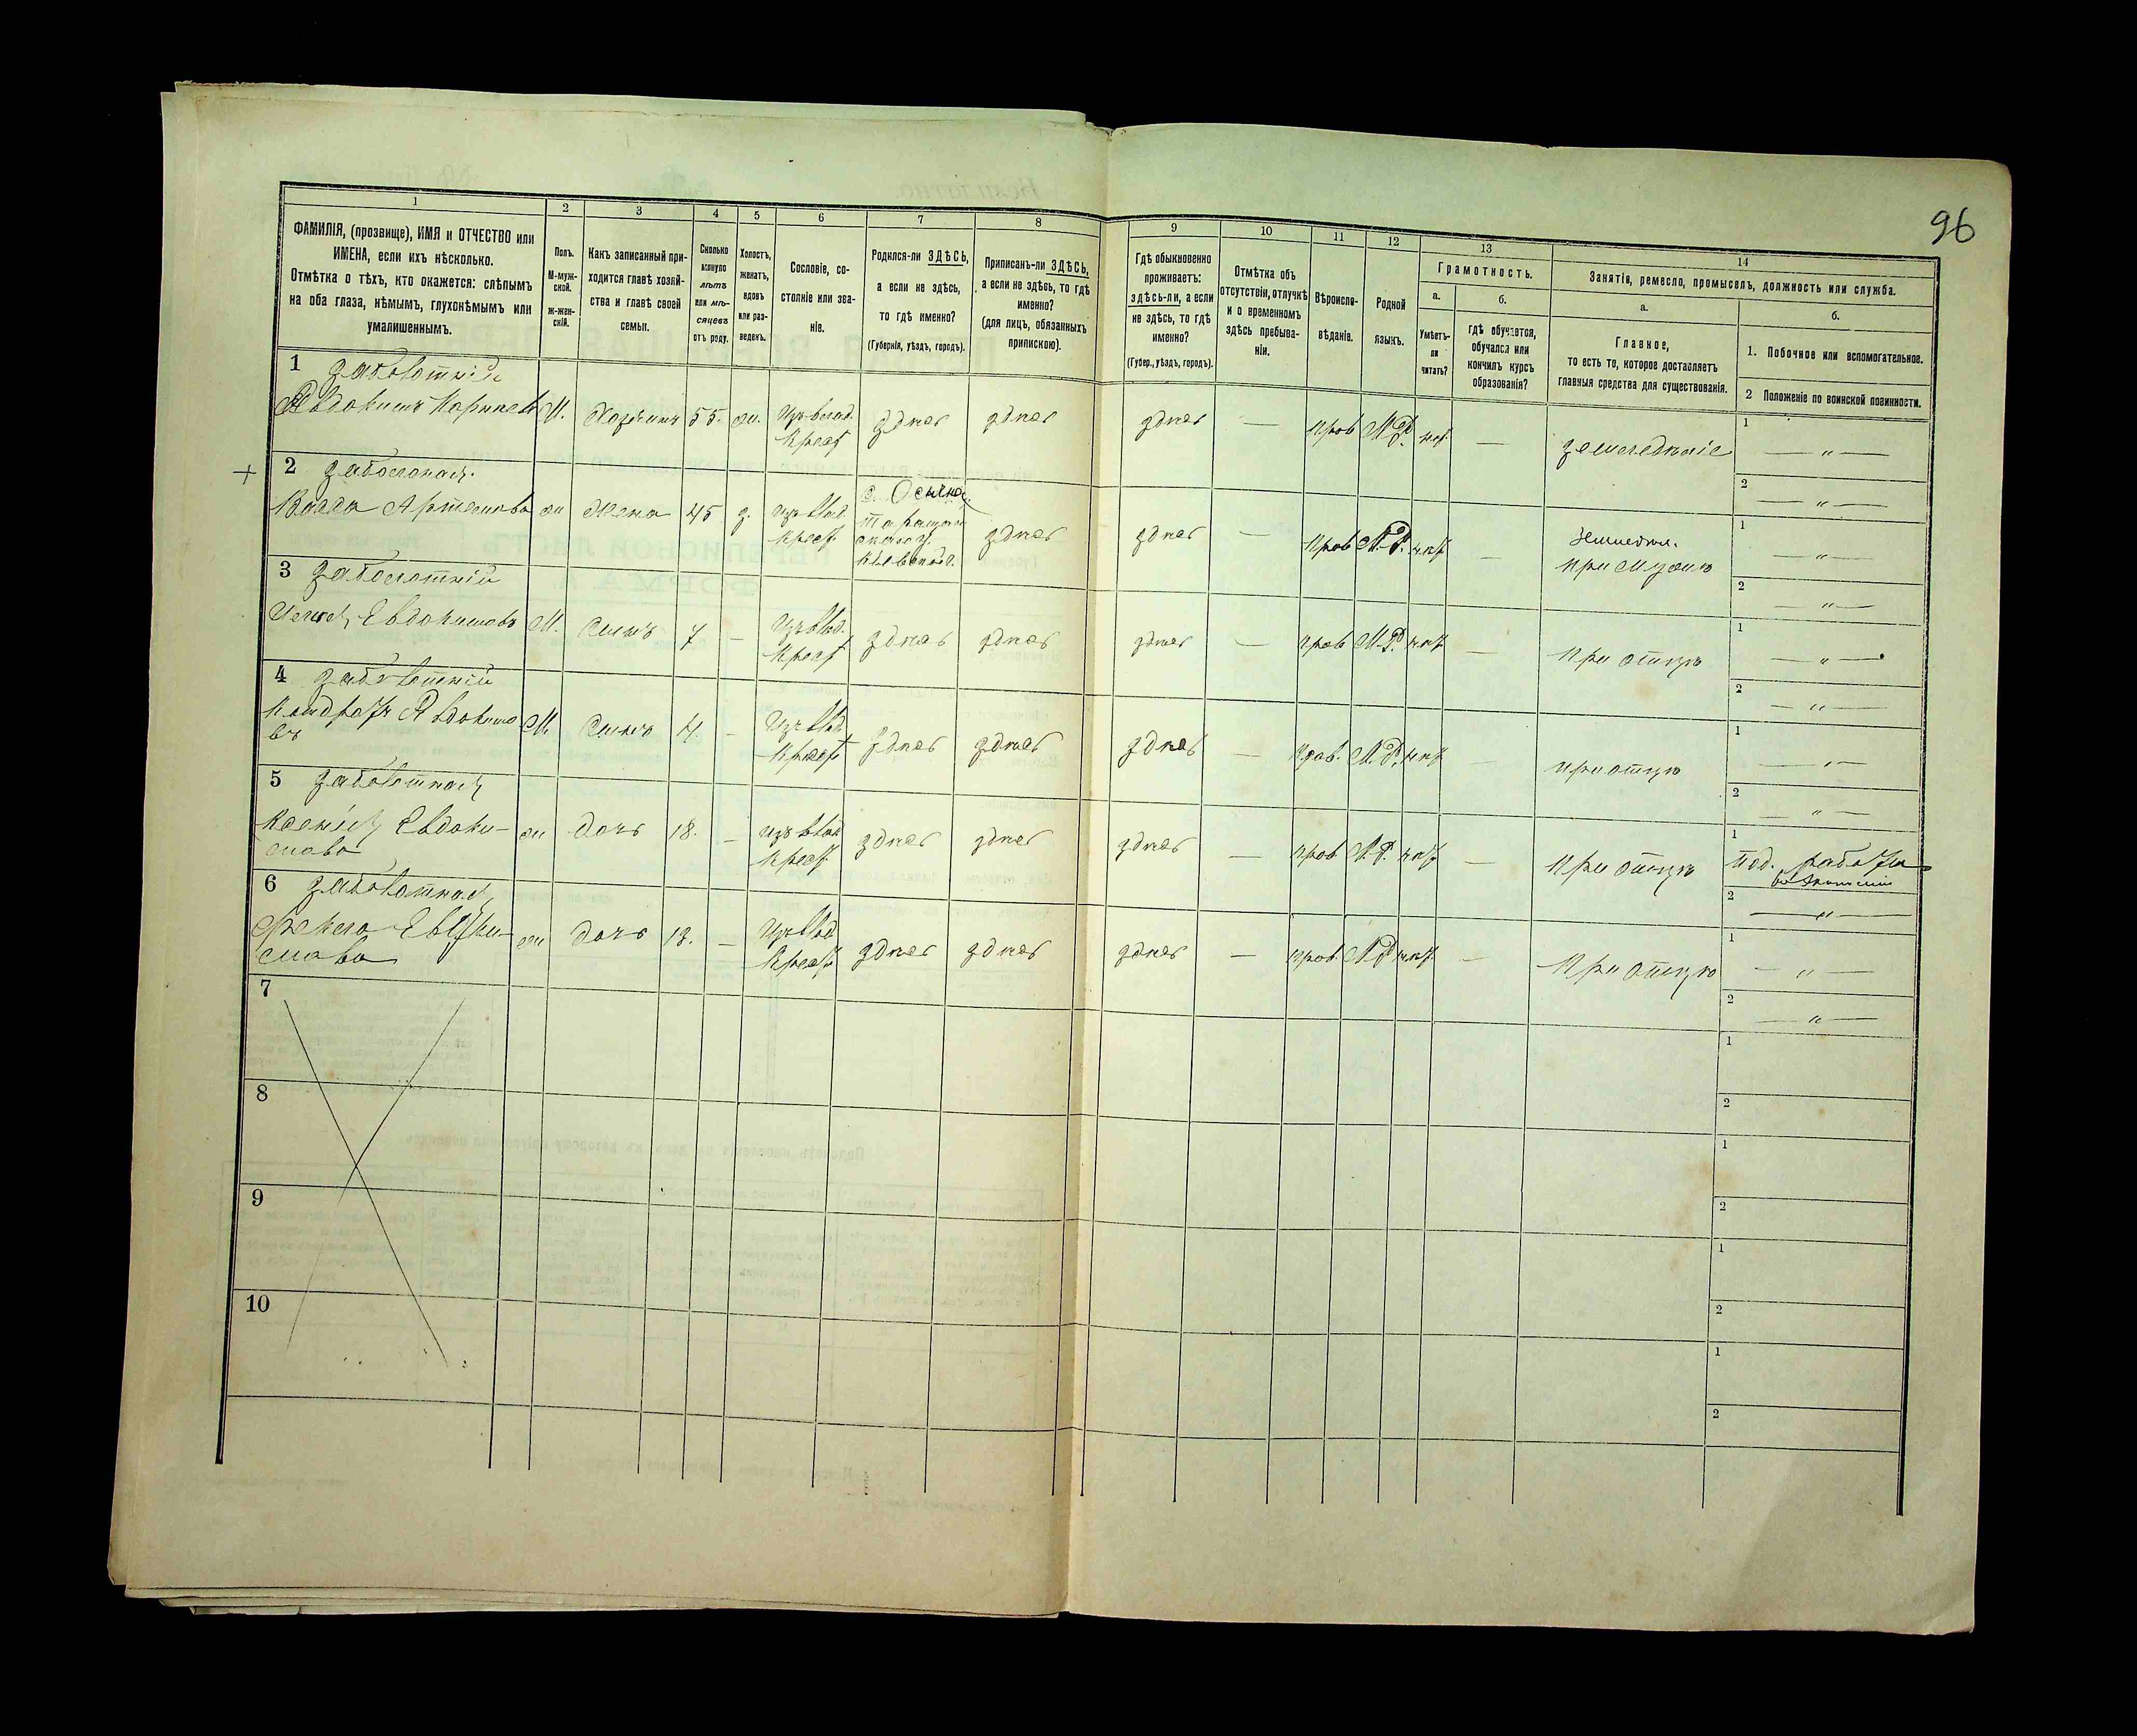 96
1 2 3 4 5 6 7 8 9 10 11 12 13 14
ФАМИЛІЯ, (прозвище), ИМЯ и ОТЧЕСТВО или
ИМЕНА, если ихъ нѣсколько.
Отмѣтка о тѣхъ, кто окажется: слѣпымъ
на оба глаза, нѣмымъ, глухонѣмымъ или
умалишеннымъ.
Полъ.
М-муж-
ской.
ж-жен-
скій.
Какъ записанный при-
ходится главѣ хозяй-
ства и главѣ своей
семьи.
Сколько
минуло
лѣтъ
или мѣ-
сяцевъ
отъ роду.
Холостъ,
женатъ,
вдовъ
или раз-
веденъ.
Сословіе, со-
стояніе или зва-
ніе.
Родился-ли ЗДѢСЬ,
а если не здѣсь,
то гдѣ именно?
(Губернія, уѣздъ, городъ).
Приписанъ-ли ЗДѢСЬ,
а если не здѣсь, то гдѣ
именно?
(для лицъ, обязанныхъ
припискою).
Гдѣ обыкновенно
проживаетъ:
здѣсь-ли, а если
не здѣсь, то гдѣ
именно?
(Губер., уѣздъ, городъ).
Отмѣтка объ
отсутствіи, отлучкѣ
и о временномъ
здѣсь пребыва-
ніи.
Вѣроиспо-
вѣданіе.
Родной
языкъ.
Грамотность.
а.
Умѣетъ-
ли
читать?
б.
гдѣ обучается,
обучался или
кончилъ курсъ
образованія?
Занятія, ремесло, промыселъ, должность или служба.
а.
Главное,
то есть то, которое доставляетъ
главныя средства для существованія.
б.
1. Побочное или вспомогательное.
2 Положеніе по воинской повинности.
1 Заболотній
Евдокимъ М. Хозяинъ 55. ж. Изъ влад. Крест здесь здесь здесь — прав М.Р. нѣт — земледеліе
1 — „ —
2 — „ —
2
Артемова ж Жена 45 з. Изъ влад. Крест с. здесь здесь — прав М.Р. нѣт — при мужѣ
1 — „ —
2 — „ —
3 Заболотній
Евдокимовъ М. Сынъ 7 — Изъ влад. Крест здесь здесь здесь — прав М.Р. нѣт — при отцѣ
1 — „ —
2 — „ —
4 Заболотній
Кондратъ Явдокимо
въ М. Сынъ 4. — Изъ влад. Крест здесь здесь здесь — прав. М.Р. нѣт — при отцѣ
1 — „ —
2 — „ —
5 Заболотная
Ксенія Евдоки-
мова ж дочь 18. — Изъ влад Крест здесь здесь здесь — прав М.Р. нѣт — при отцѣ
1 под. работы
2 — „ —
6 Заболотная
Фекла
мова ж дочь 13. — Изъ влад Крест здесь здесь здесь — прав. М.Р. нѣт — при отцѣ
1 — „ —
2 — „ —
7
1
2
8
1
2
9
1
2
10
1
2